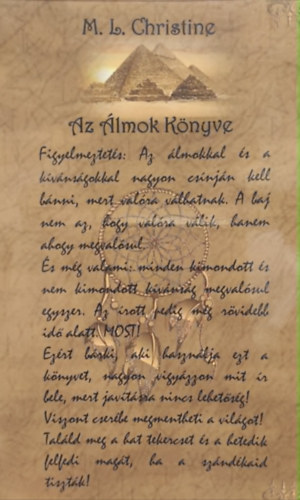 M. L. Christine
Az Álmok Könyve
Figyelmeztetés: Az álmokkal és a
kívánságokkal nagyon csínján kell
bánni, mert valóra válhatnak. A baj
nem az, hogy valóra válik, hanem
ahogy megvalósul.
És még valami: minden kimondott és
nem kimondott kívánság megvalósul
egyszer. Az írott pedig még rövidebb
idő alatt. MOST!
Ezért bárki, aki használja ezt a
könyvet, nagyon vigyázzon mit ír
bele, mert javításra nincs lehetőség!
Viszont cserébe megmentheti a világot!
Találd meg a hat tekercset és a hetedik
felfedi magát, ha a szándékaid
tiszták!